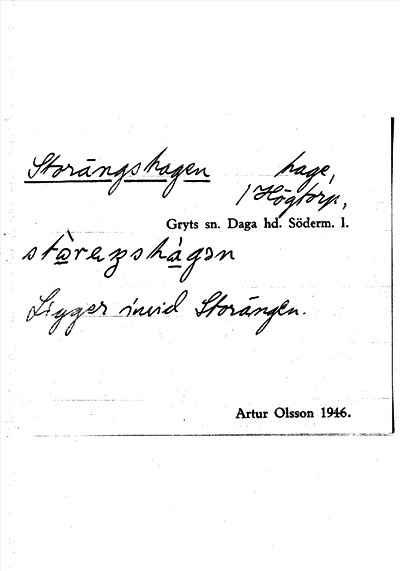 Storängshagen hage,
1 Högtorp,
Gryts sn. Daga hd. Söderm. l.
Ligger invid Storängen.
Artur Olsson 1946.